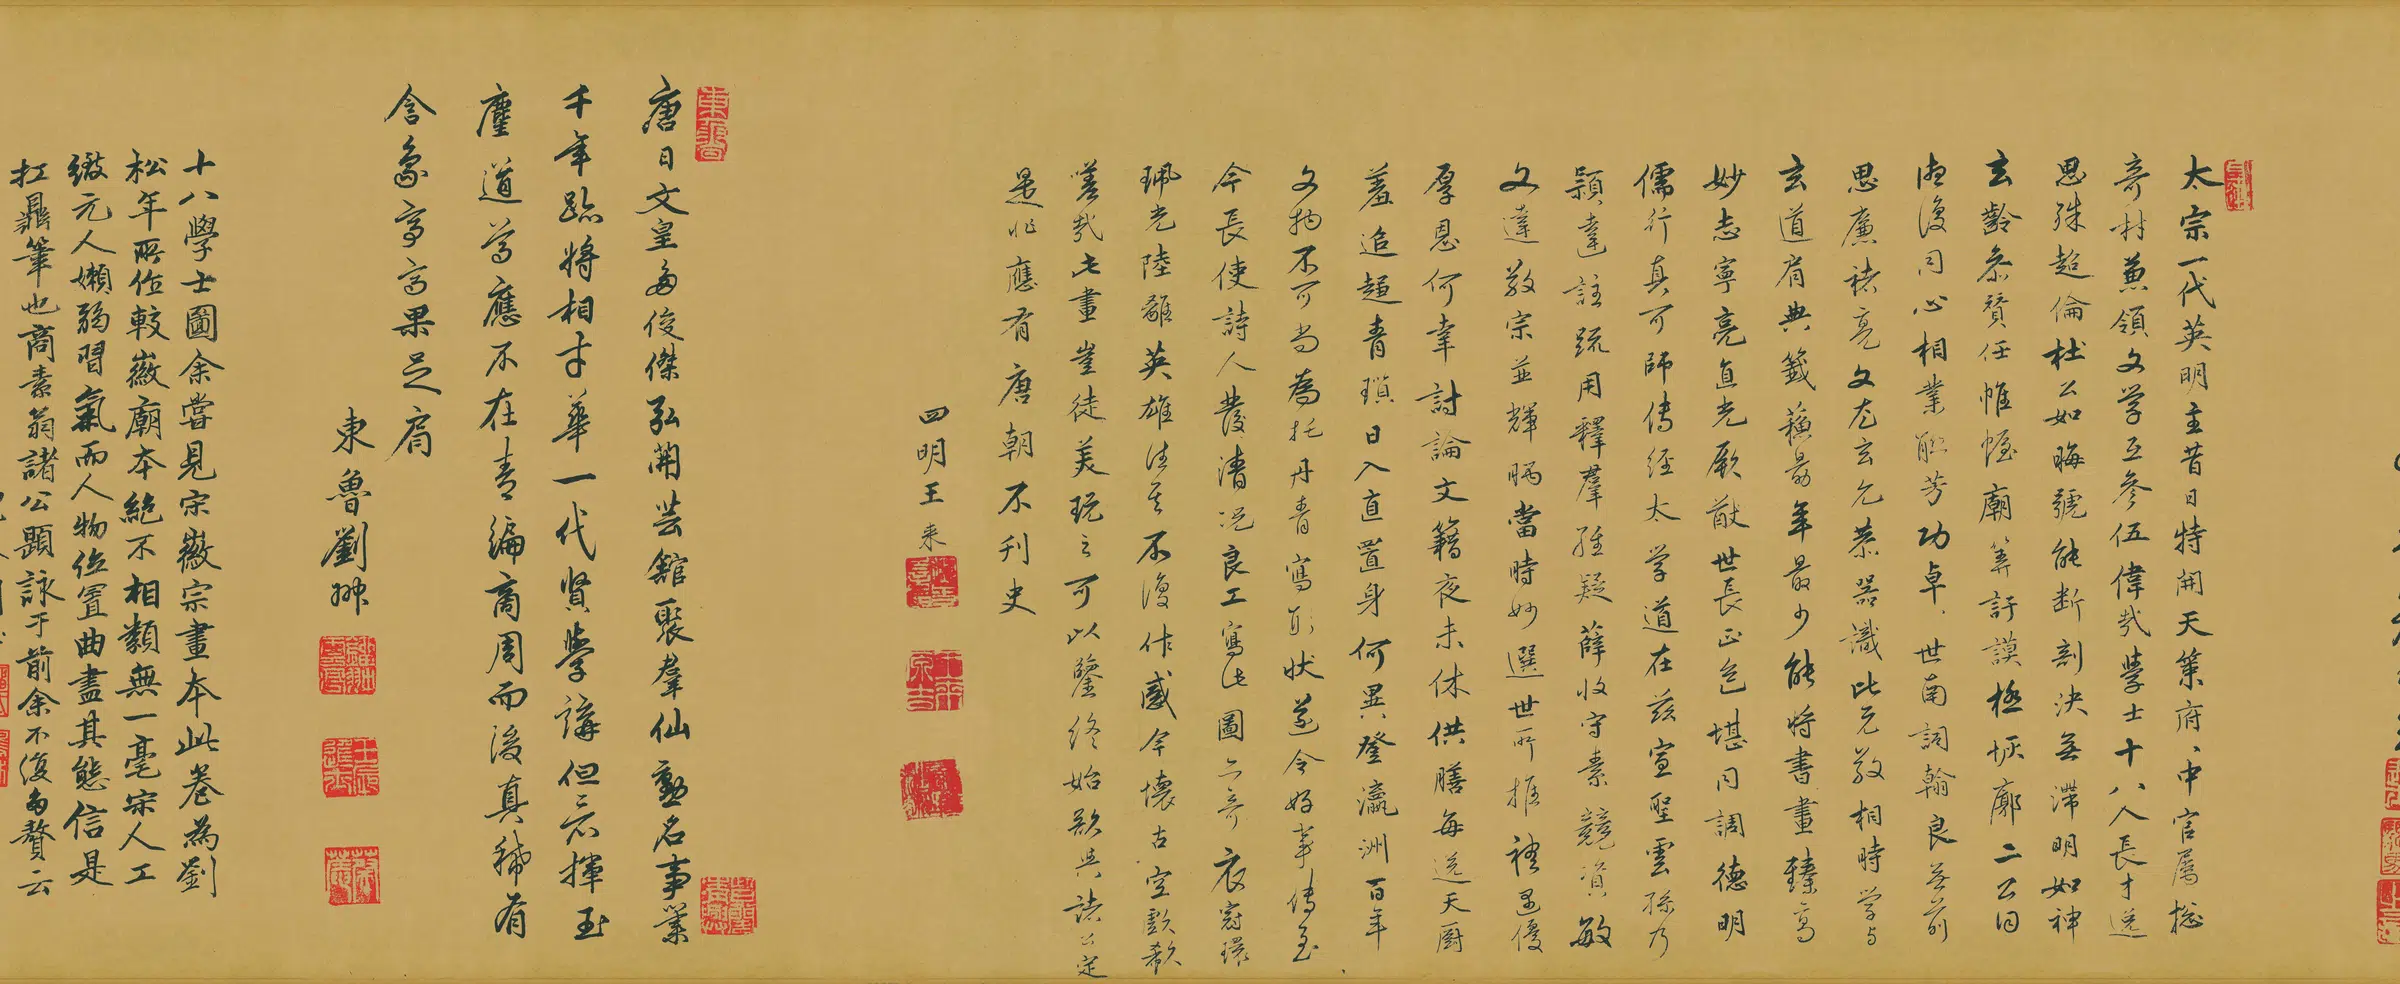 太宗一代英明主昔日特開天策府中官属総
奇材兼領文学互參伍偉哉學士十八人長才遠
思殊超倫杜公如晦號能断剖決無滯明如神
玄齡參贊任帷幄廟筭訏謨極恢廓二公同
心相業聯芳功卓世南詞翰良無前
思廉褚亮文尤玄允恭器識此元敬相時学与
玄道肩典籤蘇勗年最少能将書畫臻高
妙志寧亮直光厥猷世長正色堪同調德明
儒行真可師傳經太学道在兹宣聖雲孫乃
穎達註疏用釋羣經疑薛收守素競資敏
文達敬宗並輝暎當時妙選世所推禮遇優
厚恩何幸討論文籍夜未休供膳每送天厨
羞追趨青瑣日入直置身何異登瀛洲百年
文物不可當為托丹青寫形狀遂令好事傳至
今長使詩人發清況良工寫此圖亦奇衣冠環
珮光陸離英雄往矣不復作感今懷古空歔欷
嗟哉此畫豈徒美玩之可以鑒終始欲与諸公定
是非應有唐朝不刊史
四明王來
唐日文皇多俊傑弘開芸館聚羣仙勳名事業
千年跡将相才華一代賢學講但之揮玉
麈道尊應不在青編商周而後真稀有
含象亭高果足肩
東魯劉翀
十八學士圖余嘗見宋徽宗畫本此卷為劉
松年所作較徽廟本絕不相類無一毫宋人工
緻元人嬾弱習氣而人物位置曲盡其態信是
扛鼎筆也商素翁諸公題詠于前余不復多贅云